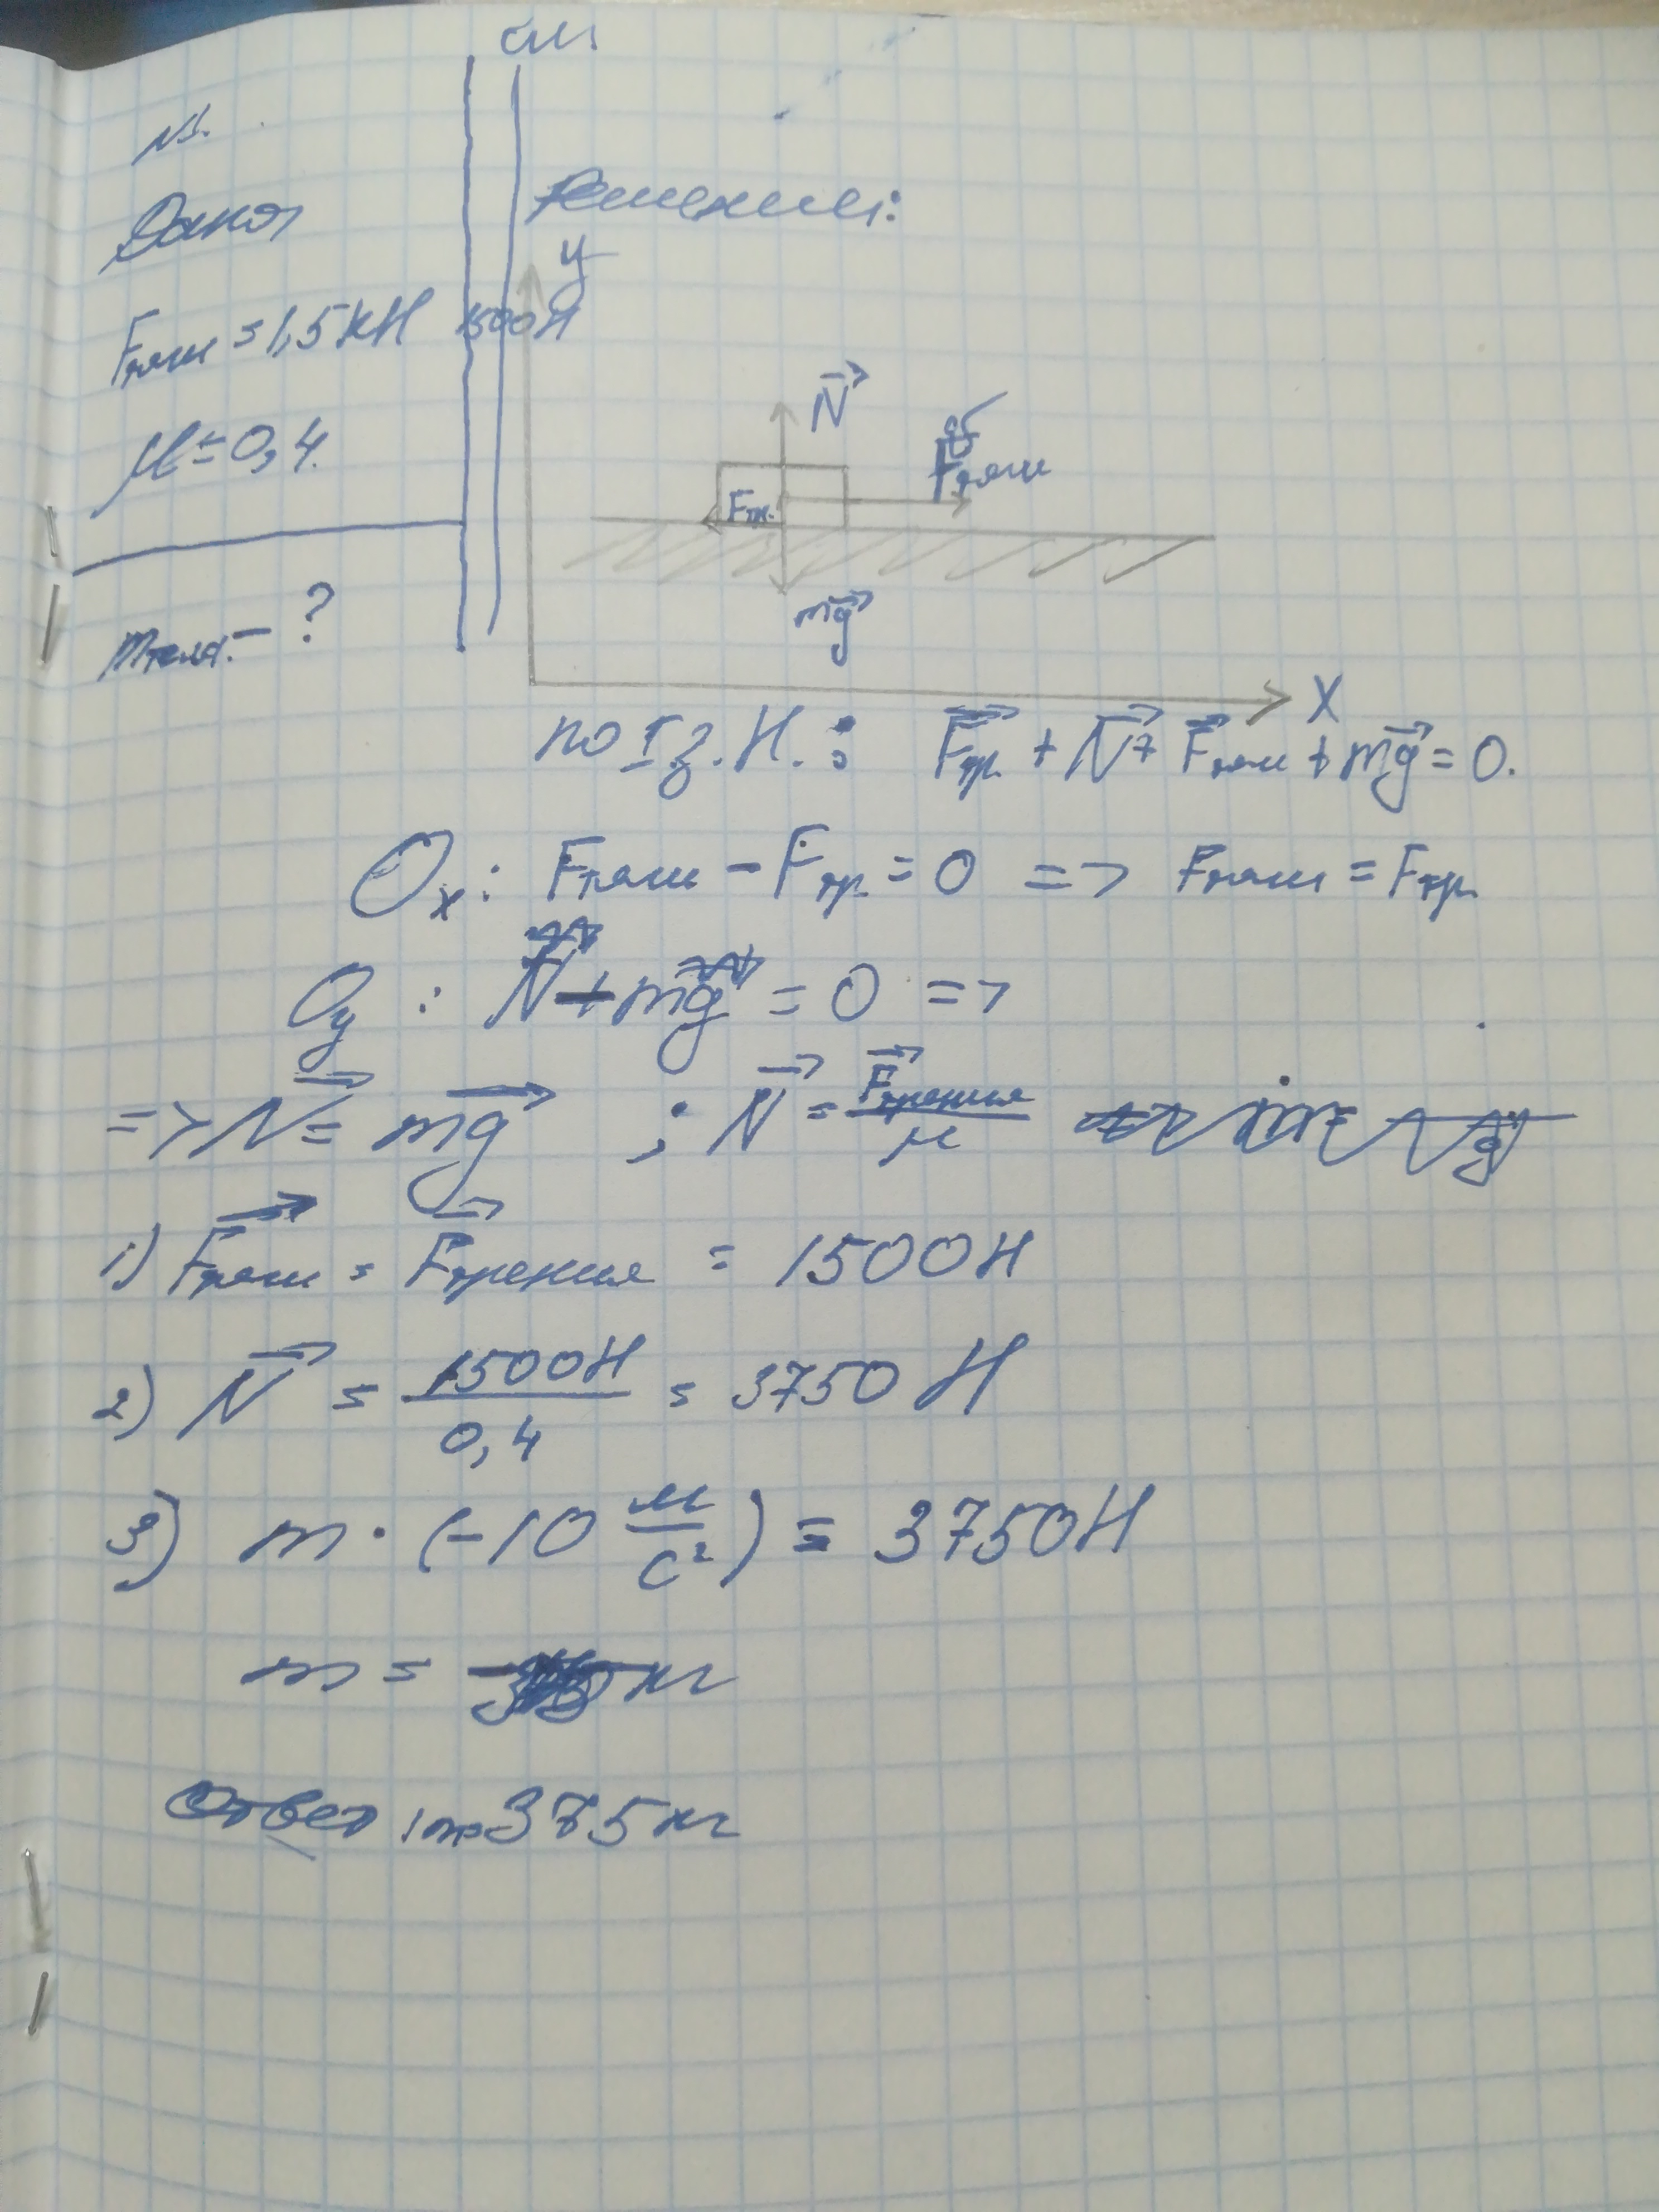 СИ
№1.
Дано:
Решение:
Fтяги = 1,5 кН 1500Н
μ = 0,4.
mтела - ?
y
N
Fтяги
Fтр.
mg
X
по I з.Н.: Fтр. + N + Fтяги + mg = 0.
Ox: Fтяги - Fтр. = 0 => Fтяги = Fтр.
Oy : N - mg = 0 =>
=> N = mg ; N = Fтрения / μ
1) Fтяги = Fтрения = 1500Н
2) N = 1500Н / 0,4 = 3750 Н
3) m · (-10 м/с²) = 3750Н
m = кг
Ответ: m=375кг